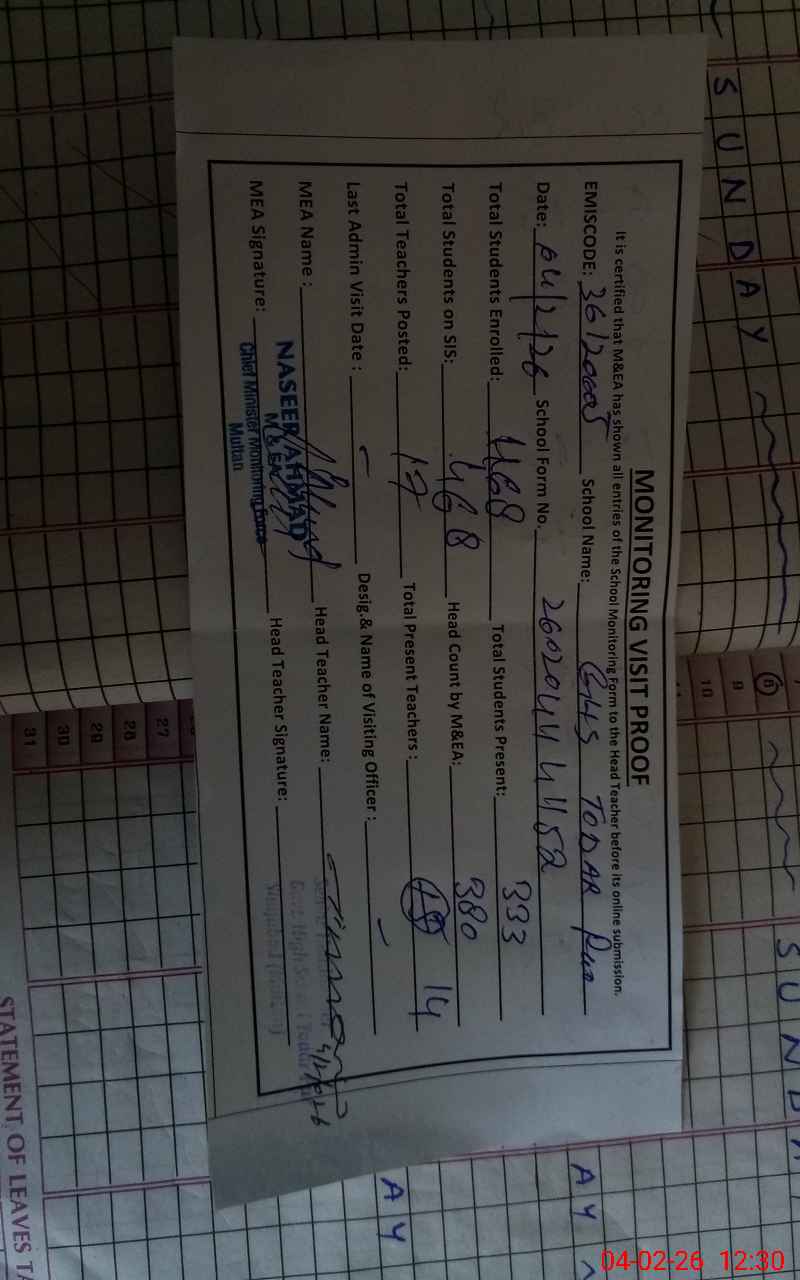 MONITORING VISIT PROOF
It is certified that M&EA has shown all entries of the School Monitoring Form to the Head Teacher before its online submission.
EMISCODE: School Name: GHS TODAR Pur
Date: 04/2/26 School Form No. 26020444452
Total Students Enrolled: 468 Total Students Present: 393
Total Students on SIS: 468 Head Count by M&EA: 380
Total Teachers Posted: 17 Total Present Teachers: 14
Last Admin Visit Date : – Desig.& Name of Visiting Officer : –
MEA Name : Head Teacher Name:
MEA Signature: Head Teacher Signature:
NASEER AHMAD
M & EA
Chief Minister Monitoring Force
Multan
4/2/2026
SUNDAY
SUNDA
AY
AY
8
9
10
27
28
29
30
31
STATEMENT OF LEAVES TA
04-02-26 12:30